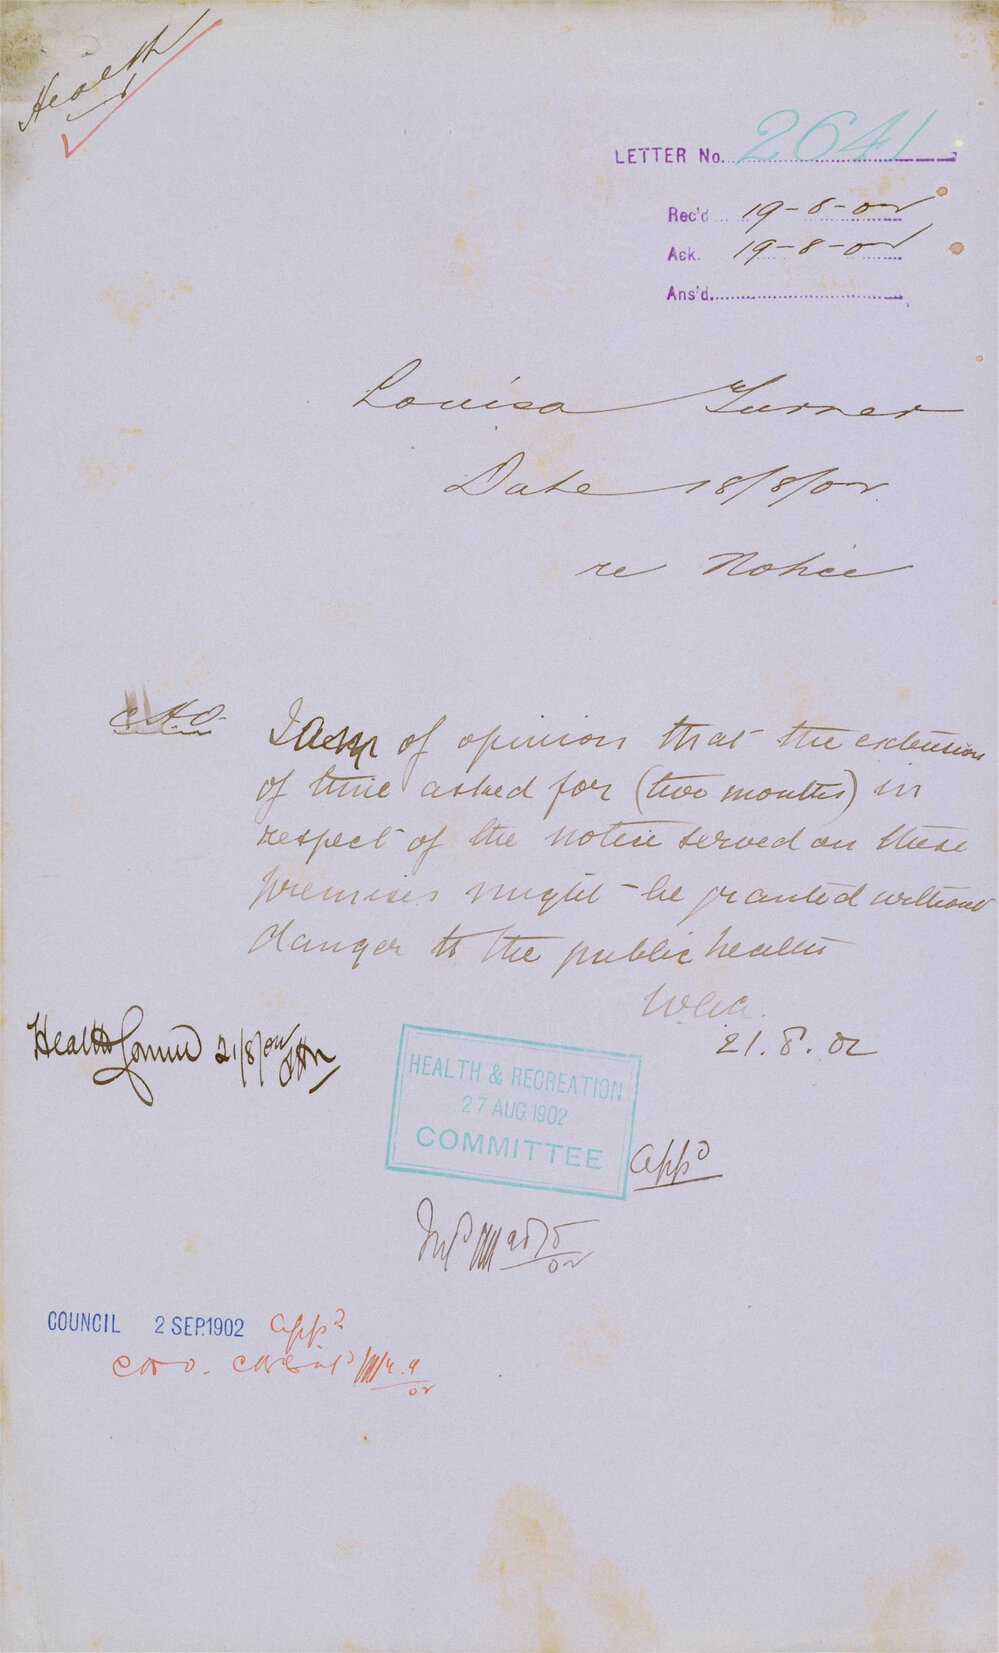 Health
LETTER No. 2641
Rec'd 19-8-02
Ack. 19-8-02
Ans'd.
Louisa Turner
Date 18/8/02.
re Notice
C.H.O. I am of opinion that the extension
of time asked for (two months) in
respect of the notice served on these
premises might be granted without
danger to the public health
21.8.02
Health Comm 21/8/02
HEALTH & RECREATION
27 AUG. 1902
COMMITTEE
appd
COUNCIL 2 SEP. 1902 appd
CHO.